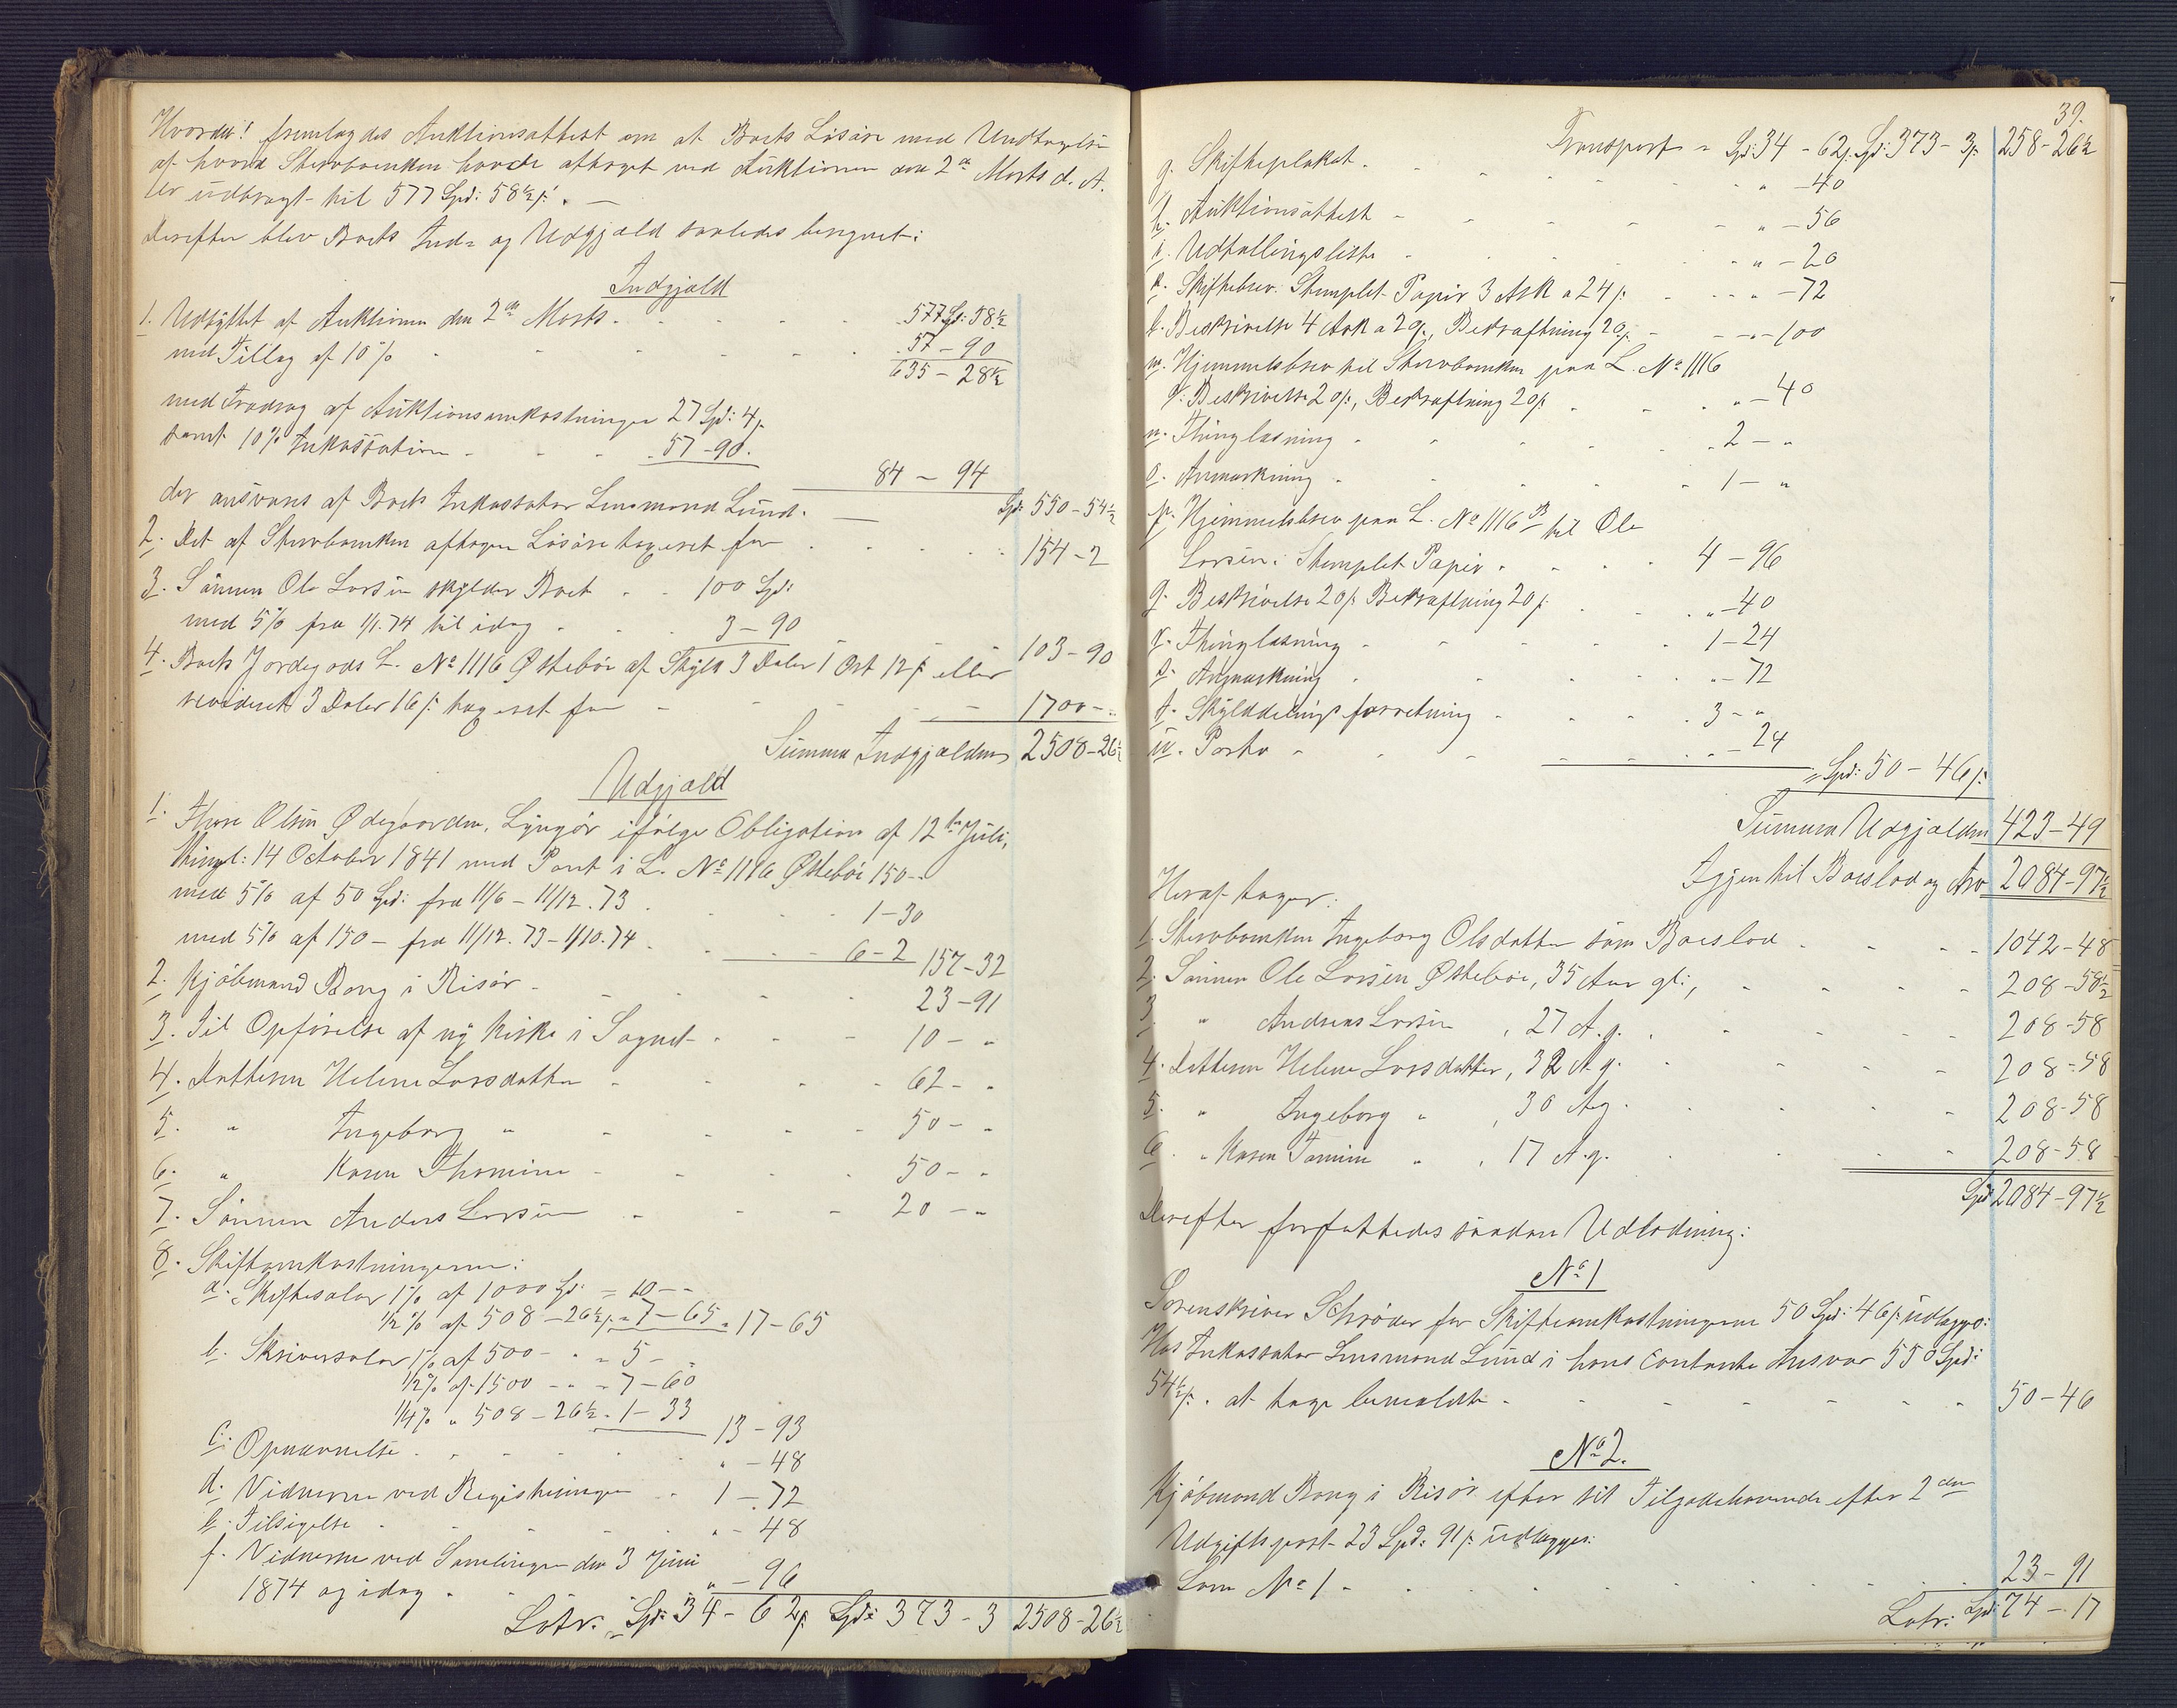 Hvorda! fremlagdes Auktionsattest om at Boets Løsøre med Undtagelse
af hvad Stervboenken havde aftaget ved Auktionen den 2den Marts d. A.
er udbragt til 577 Spd: 58½ ß. —
Derefter blev Boets Ind= og Udgjæld saaledes beregnet:
Indgjæld
1. Udbyttet af Auktionen den 2den Marts . . . 577 Spd: 58½
med Tillæg af 10% . . . 57 - 90
635 - 28½
med Fradrag af Auktionsomkostninger 27 Spd: 4 ß
samt 10% Inkassation . . . 57 - 90.
84 - 94
der ansvares af Boets Inkassator Lensmand Lund. — Spd: 550 - 54½
2. Det af Stervboenken aftagne Løsøre taxeret for . . . 154 - 2
3. Sønnen Ole Larsen skylder Boet . . 100 Spd:
med 5% fra 1/1. 74 til idag . . . 3 - 90
103 - 90
4. Boets Jordegods L. No 1116 Østebøe af Skyld 3 Daler 1 Ort 12 ß eller
revideret 3 Daler 16 ß: taxeret for - - - 1700 - "
Summa Indgjælden 2508 - 26½
Udgjæld
1. Thore Olsen Ødegaarden, Lyngør ifølge Obligation af 12te Juli,
thingl: 14 October 1841 med Pant i L. No 1116 Østebøe 150 - "
med 5% af 50 Spd: fra 11/6 - 11/12. 73 . . . 1 - 30
med 5% af 150 - fra 11/12. 73 - 1/10. 74 . . . 6 - 2 157 - 32
2. Kjøbmand Bang i Risør - - - 23 - 91
3. Til Opførelse af ny Kirke i Sognet - . . 10 - "
4. Datteren Helene Larsdatter - - - 62 - "
5. " Ingeborg " - - - 50 - "
6. " Karen Thomine - - - 50 - "
7. Sønnen Anders Larsen - - - 20 - "
8. Skifteomkostningerne:
a. Skiftesalær 1% af 1000 Spd: = 10 - -
½% af 508 - 26½ ß = 7 - 65 = 17 - 65
b. Skriversalær 1% af 500 - " = 5 - "
½% af 1500 - " = 7 - 60
¼% " 508 - 26½ = 1 - 33 13 - 93
c. Opnævnelse . . . " - 48
d. Vidnerne ved Registreringen . . 1 - 72
e. Tilsigelse . . . " - 48
f. Vidnerne ved Samlingen den 3 Juni
1874 og idag . . . " - 96
Latr. Spd: 34 - 62 ß Spd: 373 - 3 2508 - 26½
39.
Transport = Spd: 34 - 62 ß. Spd: 373 - 3 ß. 258 - 26½
g. Skifteplakat . . . " - 40
h. Auktionsattest - - - " - 56
i. Udtællingsliste - - - " - 20
k. Skiftebrev. Stemplet Papir 3 Ark a 24 ß . . . " - 72
l. Beskrivelse 4 Ark a 20 ß, Bekræftning 20 ß - - " - 100
m. Hjemmelsbrev til Stervboenken paa L. No 1116
: Beskrivelse 20 ß:, Bekræftning 20 ß . . . " - 40
n. Thinglæsning . . . 2 - "
o. Anmærkning . . . 1 - "
p. Hjemmelsbrev paa L. No 1116 B til Ole
Larsen: Stemplet Papir . . . 4 - 96
q. Beskrivelse 20 ß Bekræftning 20 ß . . . " - 40
r. Thinglæsning . . . 1 - 24
s. Anmærkning . . . " - 72
t. Skylddelingsforretning - . . 3 - "
u. Porto - . . . " - 24
" Spd: 50 - 46 ß
Summa Udgjælden 423 - 49
Igjen til Boeslod og Arv 2084 - 97½
Heraf tager:
1. Stervboenken Ingeborg Olsdatter som Boeslod . . . 1042 - 48
2. Sønnen Ole Larsen Østebøe, 35 Aar gl:, . . . 208 - 58½
3. " Andreas Larsen , 27 A. g. . . . 208 - 58
4. Datteren Helene Larsdatter, 32 A g. . . . 208 - 58
5. " Ingeborg " , 30 A g. . . . 208 - 58
6. " Karen Tomine " , 17 A. g. . . . 208 - 58
Spd: 2084 - 97½
Derefter forfattedes saadan Udlodning:
No 1
Sorenskriver Schrøder for Skifteomkostningerne 50 Spd: 46 ß udlægges:
Hos Inkassator Lensmand Lund i hans contante Ansvar 550 Spd:
54½ ß. at tage bemeldte - . . . 50 - 46
No 2.
Kjøbmand Bang i Risør efter sit Tilgodehavende efter 2den
Udgiftspost 23 Spd: 91 ß: udlægges:
Som No 1 - . . . 23 - 91
Latr: Spd: 74 - 17